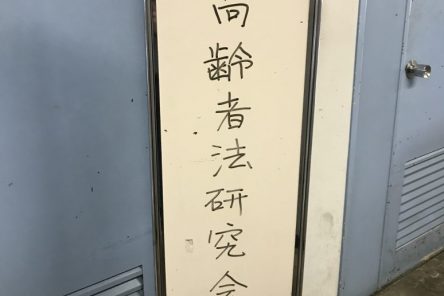 高齢者法研究会